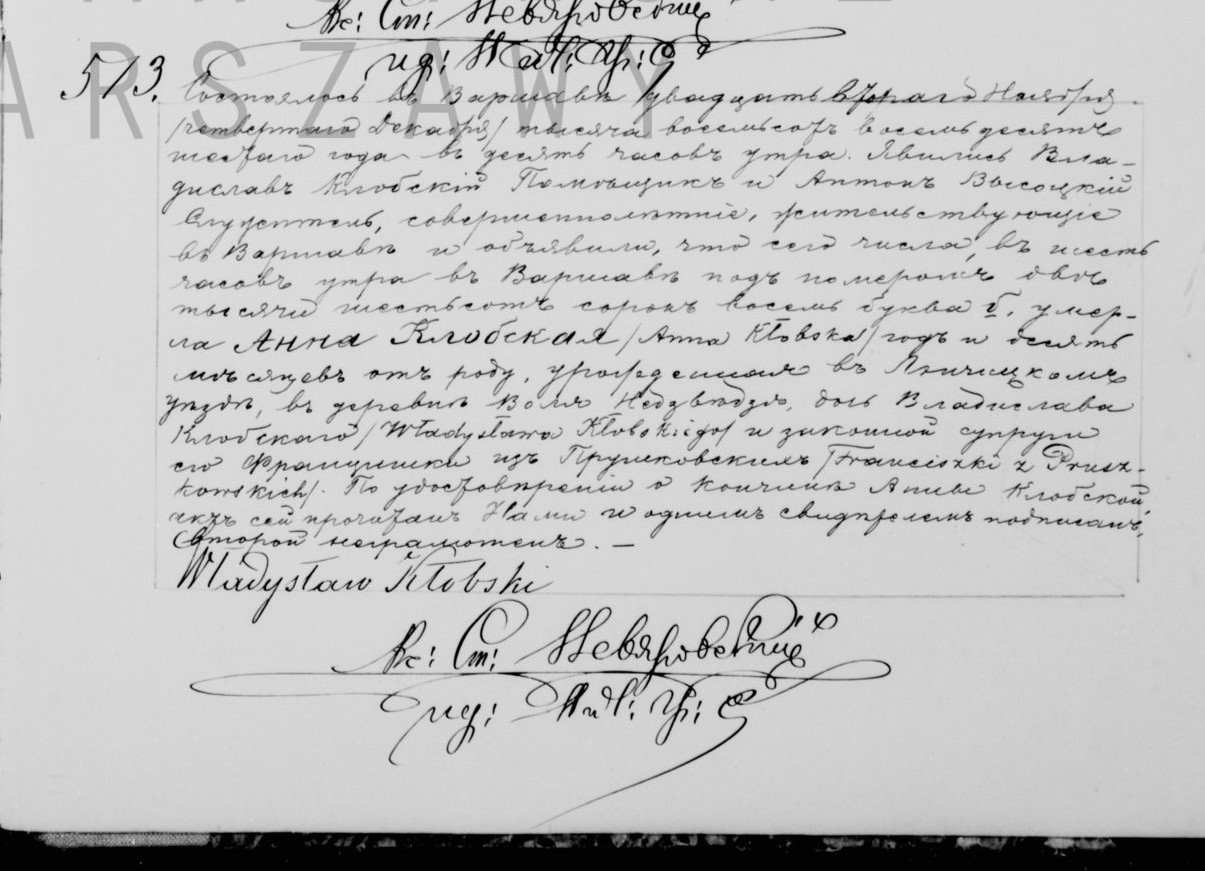 Кс: Ст:
ARSZAWY
513. Состоялось въ Варшавѣ двадцать втораго Ноября
/четвертаго Декабря/ тысяча восемьсотъ восемьдесятъ
шестаго года въ десять часовъ утра. Явились Вла-
диславъ Клобскій Помѣщикъ и Антонъ Высоцкій
Служитель, совершеннолѣтніе, жительствующіе
въ Варшавѣ и объявили, что сего числа, въ шесть
часовъ утра въ Варшавѣ подъ номеромъ двѣ
тысячи шестьсотъ сорокъ восемь буква б. умер-
ла Анна Клобская /Anna Kłobska/ годъ и десять
мѣсяцевъ отъ роду, урожденная въ Ленчицкомъ
уѣздѣ, въ деревнѣ Воля Недзвѣдзя, дочь Владислава
Клобскаго /Władysława Kłobskiego/ и законной супруги
его Францишки изъ Прушковскихъ /Franciszki z Prusz-
kowskich/. По удостовѣреніи о кончинѣ Анны Клобской
актъ сей прочитанъ Нами и однимъ свидѣтелемъ подписанъ,
второй неграмотенъ. —
Władysław Kłobski
Кс: Ст: